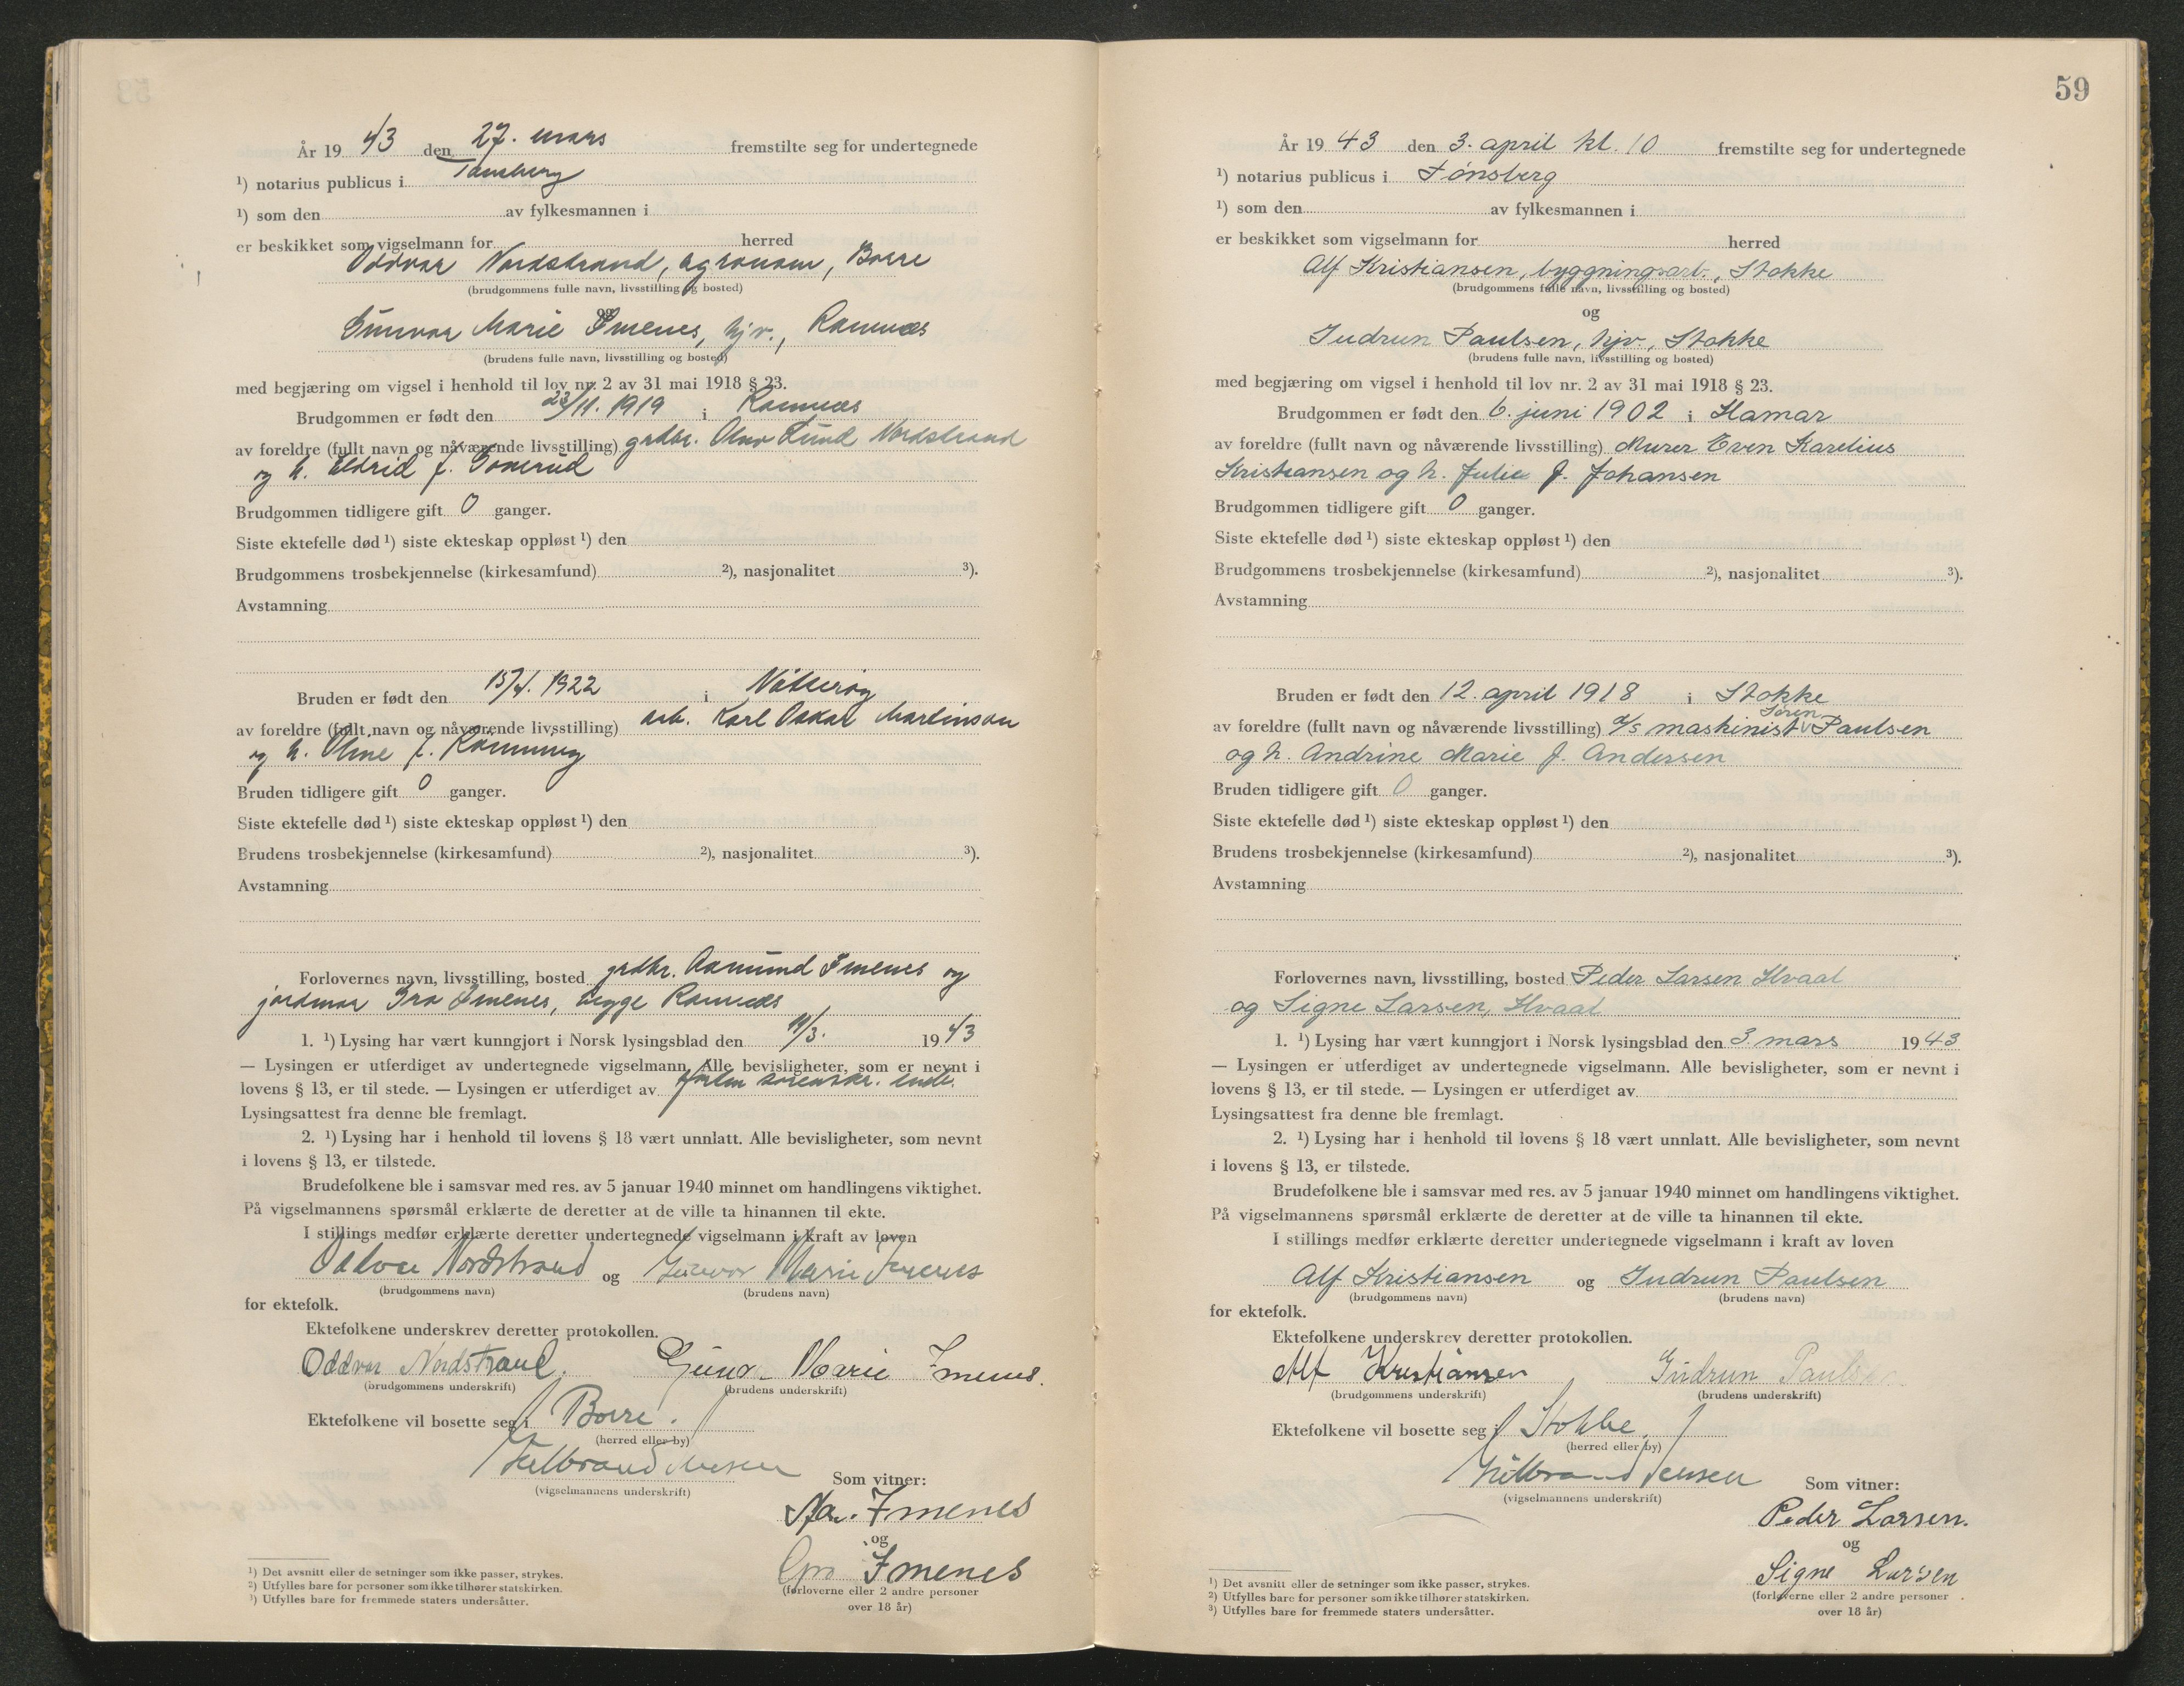 År 19 43 den 27. mars fremstilte seg for undertegnede
¹) notarius publicus i Tønsberg
¹) som den av fylkesmannen i
er beskikket som vigselmann for herred
Oddvar Nordstrand, agronom, Borre
(brudgommens fulle navn, livsstilling og bosted)
og
Gunvor Marie Imenes, hjv., Ramnes
(brudens fulle navn, livsstilling og bosted)
med begjæring om vigsel i henhold til lov nr. 2 av 31 mai 1918 § 23.
Brudgommen er født den 23/11. 1919 i Ramnes
av foreldre (fullt navn og nåværende livsstilling) grdbr. Olav Lund Nordstrand
og h. Eldrid f.
Brudgommen tidligere gift 0 ganger.
Siste ektefelle død ¹) siste ekteskap oppløst ¹) den
Brudgommens trosbekjennelse (kirkesamfund) ²), nasjonalitet ³).
Avstamning
Bruden er født den 1922 i Nøtterøy
av foreldre (fullt navn og nåværende livsstilling) arb. Karl Oskar Martinson
og h. f. Rønning
Bruden tidligere gift 0 ganger.
Siste ektefelle død ¹) siste ekteskap oppløst ¹) den
Brudens trosbekjennelse (kirkesamfund) ²), nasjonalitet ³).
Avstamning
Forlovernes navn, livsstilling, bosted grdbr. Aamund Imenes og
jordmor Gro Imenes, begge Ramnes
1. ¹) Lysing har vært kunngjort i Norsk lysingsblad den 11/3. 19 43
— Lysingen er utferdiget av undertegnede vigselmann. Alle bevisligheter, som er nevnt i
lovens § 13, er til stede. — Lysingen er utferdiget av sorenskr.
Lysingsattest fra denne ble fremlagt.
2. ¹) Lysing har i henhold til lovens § 18 vært unnlatt. Alle bevisligheter, som nevnt
i lovens § 13, er tilstede.
Brudefolkene ble i samsvar med res. av 5 januar 1940 minnet om handlingens viktighet.
På vigselmannens spørsmål erklærte de deretter at de ville ta hinannen til ekte.
I stillings medfør erklærte deretter undertegnede vigselmann i kraft av loven
Oddvar Nordstrand og Gunvor Marie Imenes
(brudgommens navn) (brudens navn)
for ektefolk.
Ektefolkene underskrev deretter protokollen.
Oddvar Nordstrand. Gunvor Marie Imenes.
(brudgommens underskrift) (brudens underskrift)
Ektefolkene vil bosette seg i Borre.
(herred eller by)
Hillbrand Jensen
(vigselmannens underskrift)
Som vitner:
Imenes
og
Gro Imenes
(forloverne eller 2 andre personer
over 18 år)
¹) Det avsnitt eller de setninger som ikke passer, strykes.
²) Utfylles bare for personer som ikke tilhører statskirken.
³) Utfylles bare for fremmede staters undersåtter.
59
År 19 43 den 3. april kl. 10 fremstilte seg for undertegnede
¹) notarius publicus i Tønsberg
¹) som den av fylkesmannen i
er beskikket som vigselmann for herred
Alf Kristiansen, byggningsarb., Stokke
(brudgommens fulle navn, livsstilling og bosted)
og
Gudrun Paulsen, hjv., Stokke
(brudens fulle navn, livsstilling og bosted)
med begjæring om vigsel i henhold til lov nr. 2 av 31 mai 1918 § 23.
Brudgommen er født den 6. juni 1902 i Hamar
av foreldre (fullt navn og nåværende livsstilling) Murer Even Karelius
Kristiansen og h. Julie f. Johansen
Brudgommen tidligere gift 0 ganger.
Siste ektefelle død ¹) siste ekteskap oppløst ¹) den
Brudgommens trosbekjennelse (kirkesamfund) ²), nasjonalitet ³).
Avstamning
Bruden er født den 12. april 1918 i Stokke
Søren
av foreldre (fullt navn og nåværende livsstilling) maskinist Paulsen
og h. Andrine Marie f. Andersen
Bruden tidligere gift 0 ganger.
Siste ektefelle død ¹) siste ekteskap oppløst ¹) den
Brudens trosbekjennelse (kirkesamfund) ²), nasjonalitet ³).
Avstamning
Forlovernes navn, livsstilling, bosted Peder Larsen Hvaal
og Signe Larsen, Hvaal
1. ¹) Lysing har vært kunngjort i Norsk lysingsblad den 3. mars 19 43
— Lysingen er utferdiget av undertegnede vigselmann. Alle bevisligheter, som er nevnt i
lovens § 13, er til stede. — Lysingen er utferdiget av
Lysingsattest fra denne ble fremlagt.
2. ¹) Lysing har i henhold til lovens § 18 vært unnlatt. Alle bevisligheter, som nevnt
i lovens § 13, er tilstede.
Brudefolkene ble i samsvar med res. av 5 januar 1940 minnet om handlingens viktighet.
På vigselmannens spørsmål erklærte de deretter at de ville ta hinannen til ekte.
I stillings medfør erklærte deretter undertegnede vigselmann i kraft av loven
Alf Kristiansen og Gudrun Paulsen
(brudgommens navn) (brudens navn)
for ektefolk.
Ektefolkene underskrev deretter protokollen.
Alf Kristiansen Gudrun Paulsen
(brudgommens underskrift) (brudens underskrift)
Ektefolkene vil bosette seg i Stokke.
(herred eller by)
Hillbrand Jensen
(vigselmannens underskrift)
Som vitner:
Peder Larsen.
og
Signe Larsen
(forloverne eller 2 andre personer
over 18 år)
¹) Det avsnitt eller de setninger som ikke passer, strykes.
²) Utfylles bare for personer som ikke tilhører statskirken.
³) Utfylles bare for fremmede staters undersåtter.